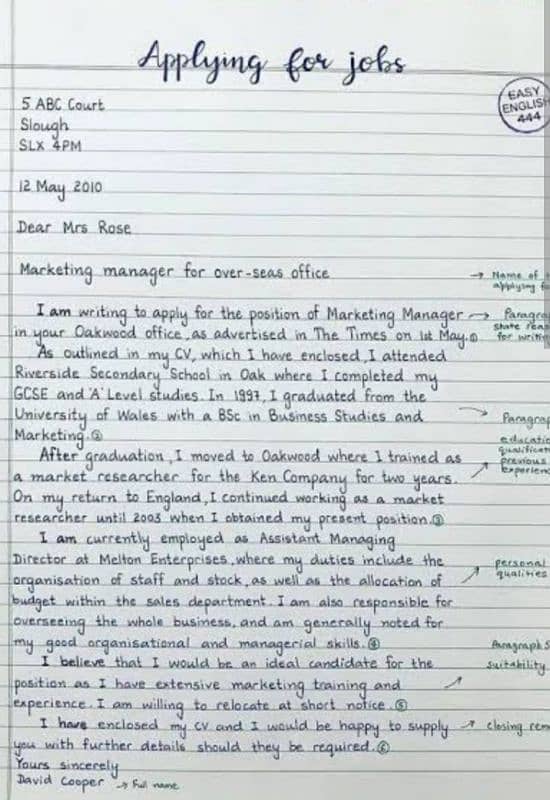 Applying for jobs
5 ABC Court
EASY
ENGLISH
444
Slough
SLX 4PM
12 May 2010
Dear Mrs Rose
Marketing manager for over-seas office
→ Name of
applying
I am writing to apply for the position of Marketing Manager
in your Oakwood office, as advertised in The Times on 1st May.①
→
state
for
As outlined in my CV, which I have enclosed, I attended
Riverside Secondary School in Oak where I completed my
GCSE and 'A' Level studies. In 1997, I graduated from the
University of Wales with a BSc in Business Studies and
Marketing.②
→
previous
After graduation, I moved to Oakwood where I trained as
a market researcher for the Ken Company for two years.
On my return to England, I continued working as a market
researcher until 2003 when I obtained my present position.③
I am currently employed as Assistant Managing
Director at Melton Enterprises, where my duties include the
organisation of staff and stock, as well as the allocation of
budget within the sales department. I am also responsible for
overseeing the whole business, and am generally noted for
my good organisational and managerial skills.④
personal
qualities
I believe that I would be an ideal candidate for the
position as I have extensive marketing training and
experience. I am willing to relocate at short notice.⑤
Paragraph 5
suitability
I have enclosed my CV and I would be happy to supply
you with further details should they be required.⑥
→ closing
Yours sincerely
David Cooper → Full name